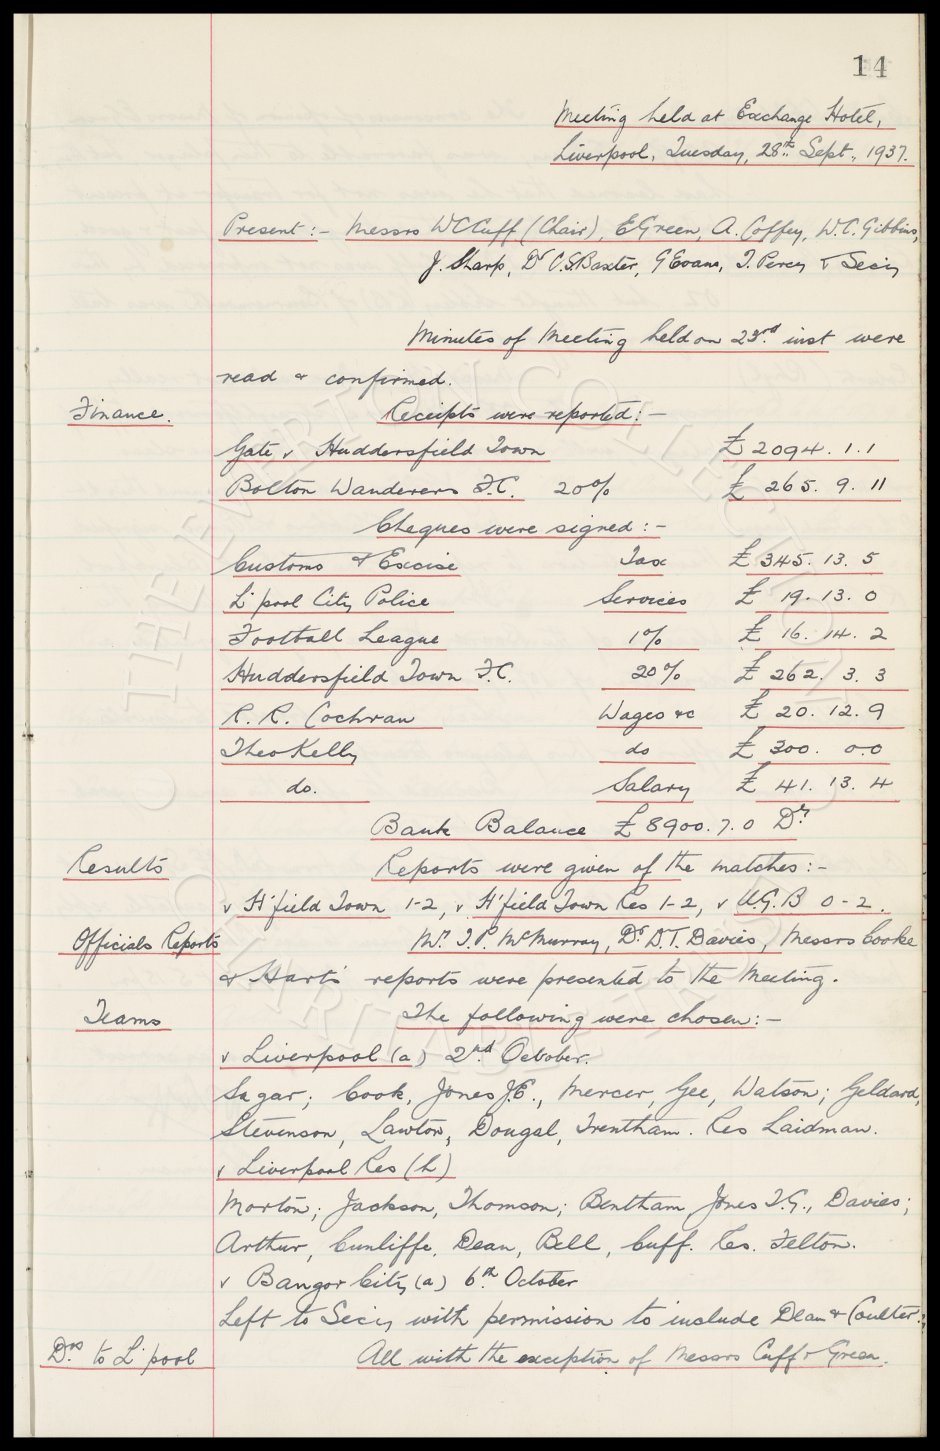 14
Meeting held at Exchange Hotel,
Liverpool, Tuesday, 28th Sept., 1937.
Present:- Messrs W C Cuff (Chair), E Green, A. Coffey, W.C. Gibbins,
J. Sharp, Dr C.S. Baxter, G Evans, T. Percy & Secy
Minutes of Meeting held on 23rd inst were
read & confirmed.
Finance. Receipts were reported:-
Gate v Huddersfield Town £2094. 1. 1
Bolton Wanderers F.C. 20% £ 265. 9. 11
Cheques were signed:-
Customs & Excise Tax £345. 13. 5
L'pool City Police Services £ 19. 13. 0
Football League 1% £ 16. 14. 2
Huddersfield Town F.C. 20% £ 262. 3. 3
R. R. Cochran Wages &c £ 20. 12. 9
Theo Kelly do £ 300. 0.0
do. Salary £ 41. 13. 4
Bank Balance £8900. 7. 0 Dr
Results Reports were given of the matches:-
v H'field Town 1-2, v H'field Town Res 1-2, v U.G.B 0-2.
Officials Reports Mr. T.P. McMurray, Dr. D.T. Davies, Messrs Cooke
& Harts' reports were presented to the Meeting.
Teams The following were chosen:-
v Liverpool (a) 2nd October.
Sagar; Cook, Jones J.E., Mercer, Gee, Watson; Geldard,
Stevenson, Lawton, Dougal, Trentham. Res Laidman.
v Liverpool Res (h)
Morton; Jackson, Thomson; Bentham, Jones T.G., Davies;
Arthur, Cunliffe, Dean, Bell, Cuff. Res. Felton.
v Bangor City (a) 6th October
Left to Secy with permission to include Dean & Coulter.
Drs to L'pool All with the exception of Messrs Cuff & Green.
THE EVERTON COLLECTION
CHARITABLE TRUST